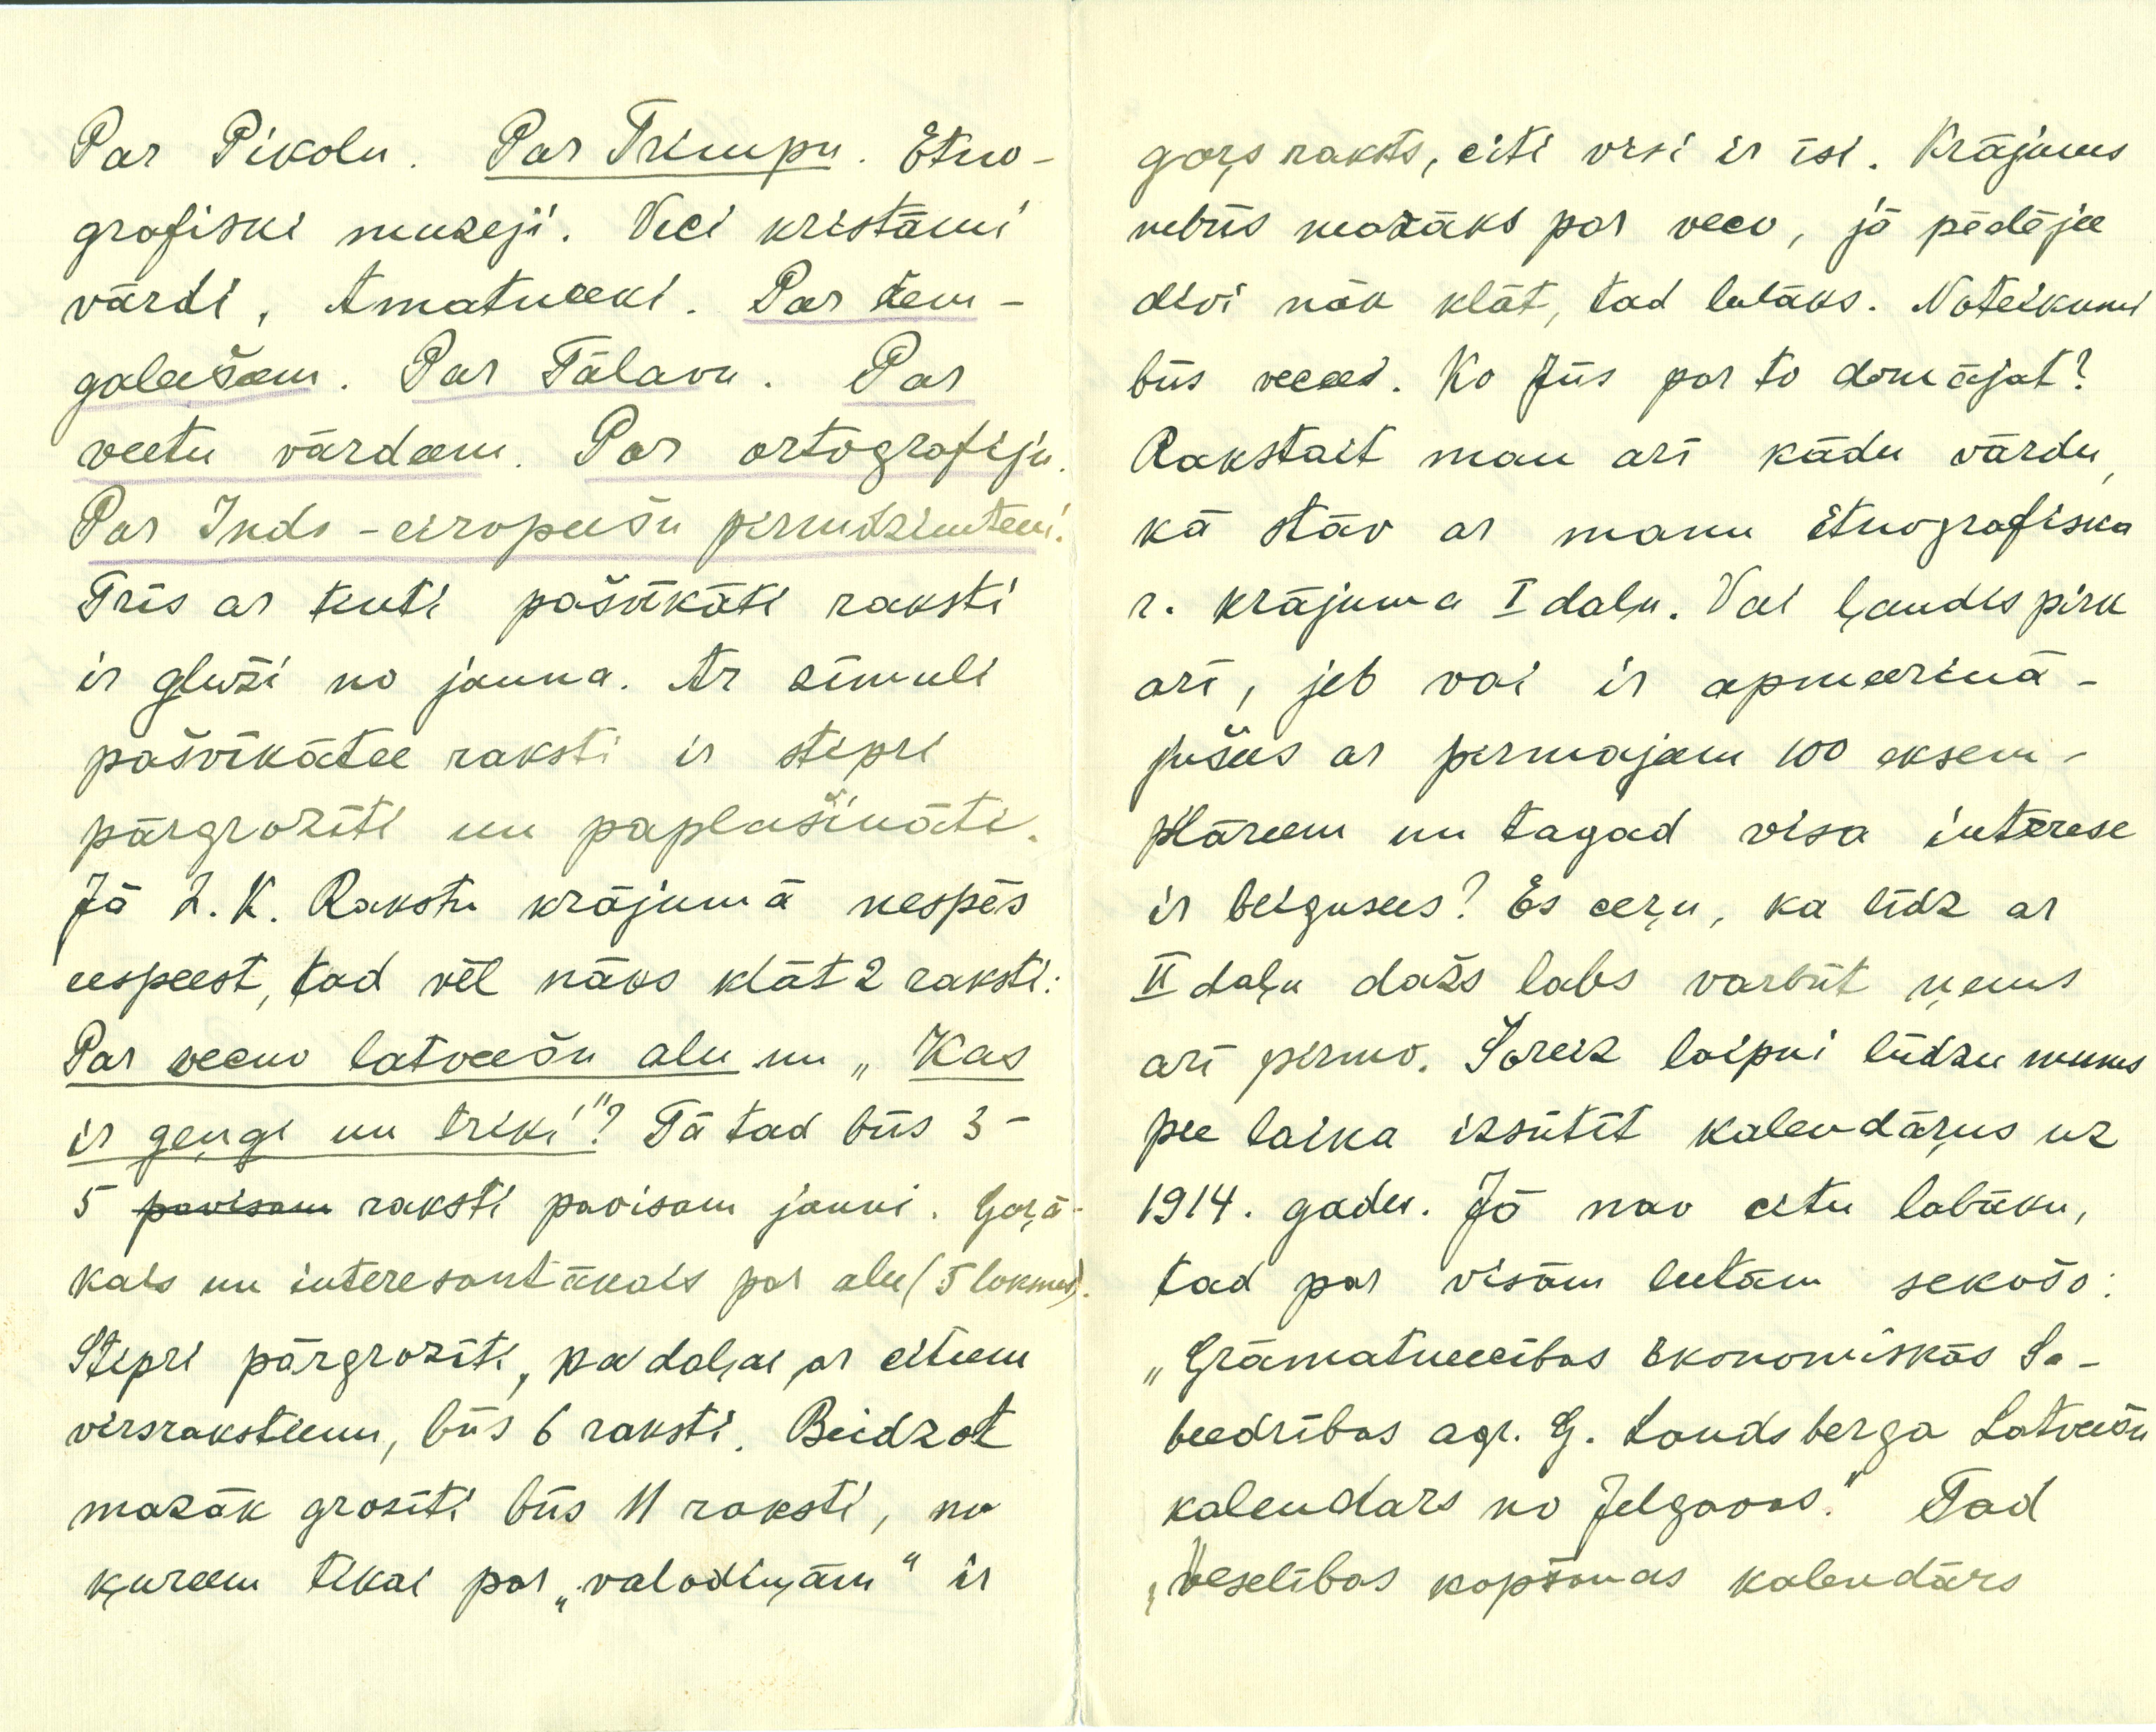 Par Pikolu. Par Trimpu. Etno-
grafiski muzeji. Veci kristāmi
vārdi, Amatneeki. Par zem-
galeešeem. Par Tālavu. Par
veetu vārdeem. Par ortografiju.
Par Indo-eiropeešu pirmdzimteni.
Trīs ar tinti pašvīkāti raksti
ir gluži no jauna. Ar zīmuli
pašvīkātee raksti ir stipri
pārgrozīti un paplašināti.
Jā R. K. Rakstu krājumā nespēs
eespeest, tad vēl nāks klāt 2 raksti:
Par veeno latveešu alu un „Kas
ir ģeņģi un triki"? Tā tad būs 3-
5 pavisam raksti pavisam jauni. Gaŗā-
kais un interesantākais par alu (5 loksnes).
Stipri pārgrozīti, pa daļai ar citeem
virsraksteem, būs 6 raksti. Beidzot
mazāk grozīti būs 11 raksti, no
kuŗeem tikai par „valodiņām" ir
gaŗš raksts, citi visi ir īsi. Krājums
nebūs mazāks par veco, jā pēdējee
divi nāk klāt, tad lelāks. Noteikumi
būs vecee. Ko Jūs par to domājat?
Rakstait man arī kādu vārdu,
kā stāv ar manu Etnografiska
r. krājuma I daļu. Vai ļaudis pirk
arī, jeb vai ir apmeerinā-
jušees ar pirmajeem 100 eksem-
plāreem un tagad visa interese
ir beigusees? Es ceŗu, ka līdz ar
II daļu dažs labs varbūt ņems
arī pirmo. Šoreiz laipni lūdzu mums
pee laika izsūtīt kalendāŗus uz
1914. gadu. Jā nav citu labāku,
tad par visām leetām sekošo:
„Grāmatneecības Ekonomiskās Sa-
beedrības agr. G. Landsberga Latveešu
kalendars no Jelgavas." Tad
„Veselības kopšanas kalendārs